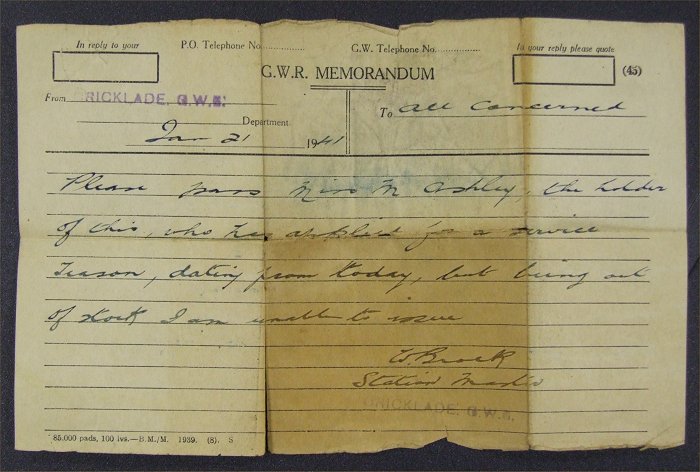 In reply to your
P.O. Telephone No.
G.W. Telephone No.
In your reply please quote
G.W.R. MEMORANDUM
(45)
From RICKLADE, G.W.R.
To All Concerned
Department.
Jan 21 1941
Please pass Miss M Ashley, the holder
of this, who has applied for a service
Season, dating from today, but being out
of stock I am unable to issue
W. Brock
Station Master
CRICKLADE, G.W.R.
85,000 pads, 100 lvs.—B.M./M. 1939. (8). S